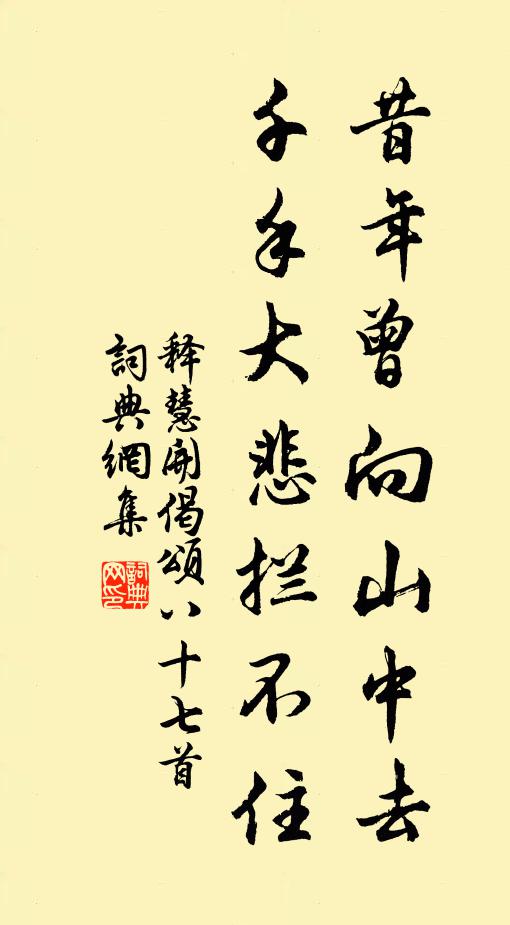 昔年曾向山中去
千手大悲拦不住
释慧开偈颂八十七首
詞典網集
詞典网印